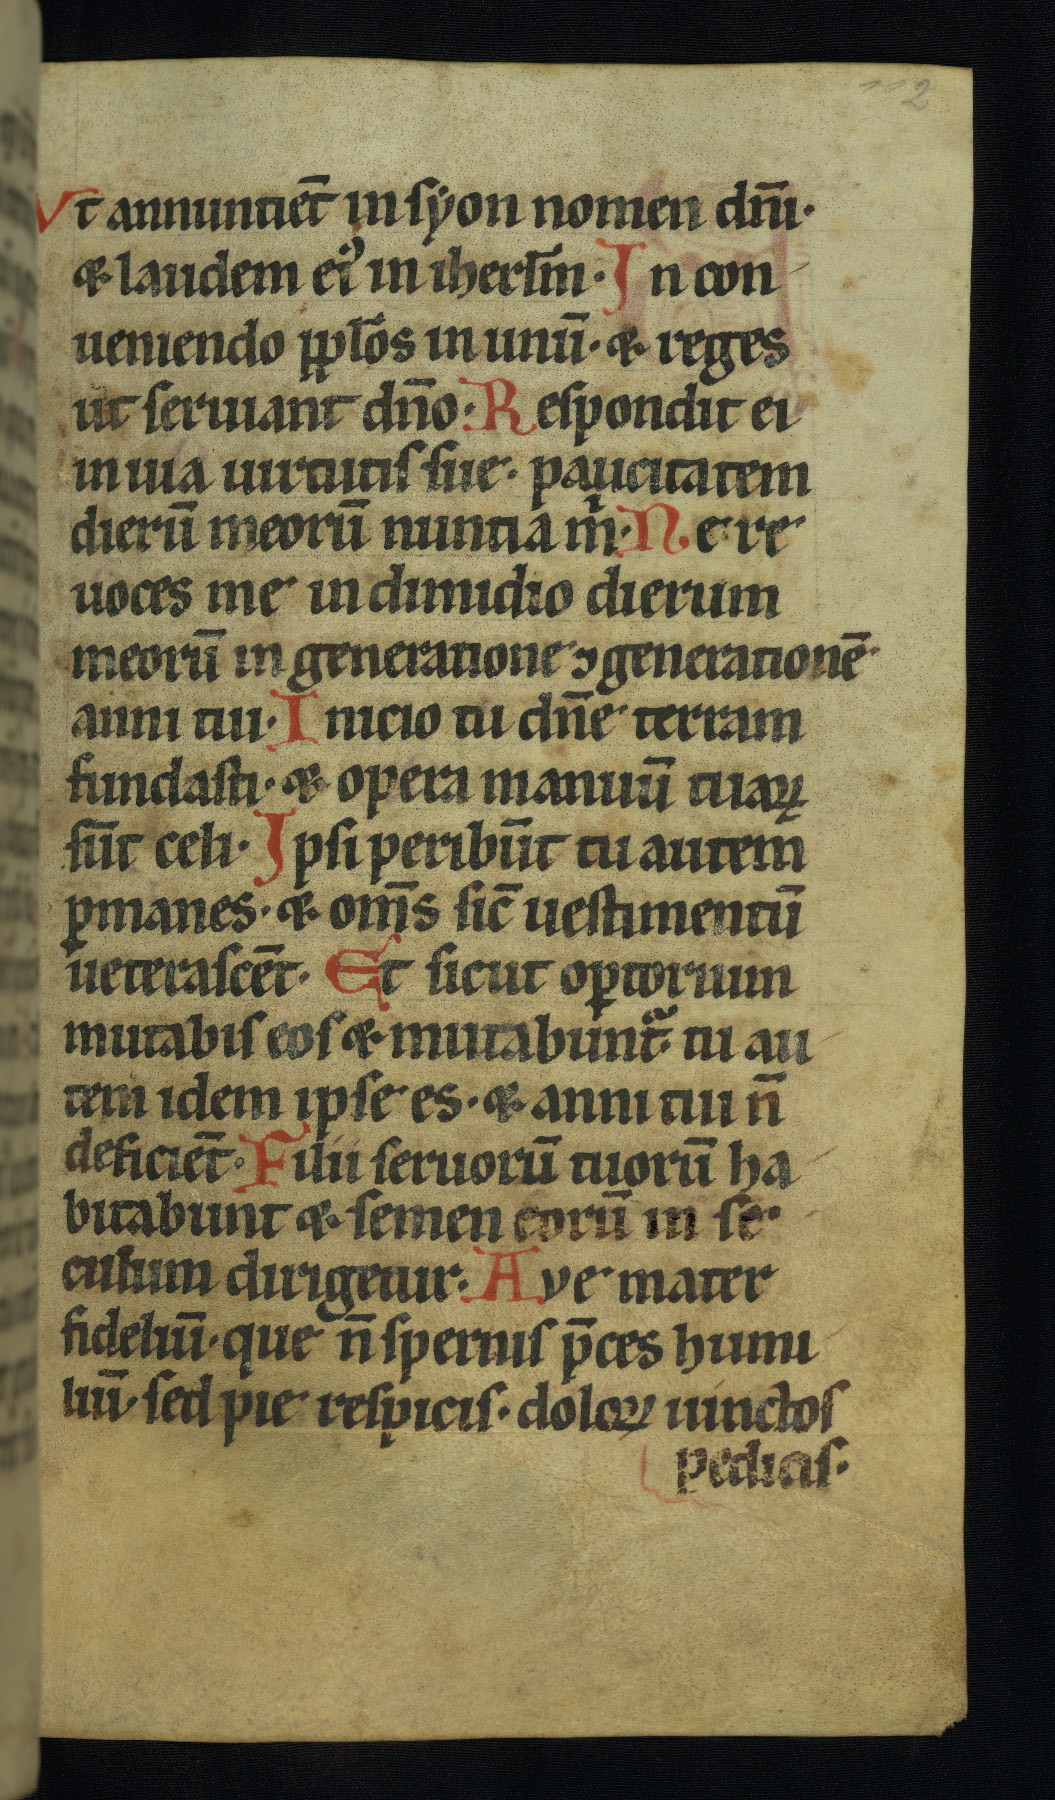 112
Vt annuntiet̄ in sẏon nomen dn̄i·
& laudem eiꝰ in iherl̄m· In con
ueniendo pp̄los in unū· & reges
ut seruiant dn̄o· Respondit ei
in uia uirtutis sue· paucitatem
dierū meorū nuntia mͥ· Ne re
uoces me in dimidio dierum
meorū in generatione ⁊ generationē
anni tui· Inicio tu dn̄e terram
fundasti· & opera manuū tuaꝝ
sūt celi· Ipsi peribūt tu autem
ꝑmanes· & om̄s sic̄ uestimentū
ueterascēt· Et sicut opꝑtorium
mutabis eos & mutabunt᷑ tu au
tem idem ipse es· & anni tui n̄
deficiēt· Filii seruorū tuorū ha
bitabunt & semen eorū in se
culum dirigetur· Ave mater
fideliū· que n̄ spernis p̄ces humi
liū· sed pie respicis· doloꝝ uinctos
pedicis·